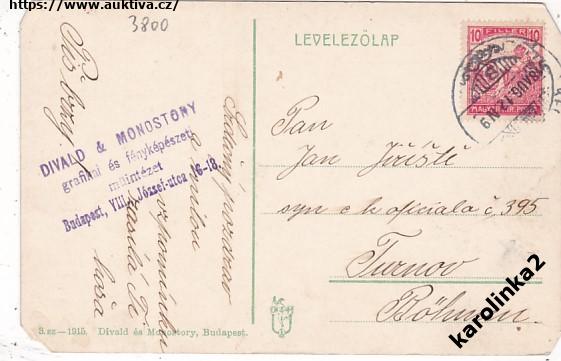 https://www.auktiva.cz/
3800
LEVELEZŐLAP
10 FILLER 10
MAGYAR KIR. POSTA
DIVALD & MONOSTORY
grafikai és fényképészeti
műintézet
Budapest, VIII., József-utca 16-18.
Srdečný pozdrav
a milou
vzpomínku
zasílá Ti
Pan
Jan Jiřiště
syn c k oficiala č. 395
Turnov
Böhmen
3. sz — 1915. Divald és Monostory, Budapest.
karolinka2